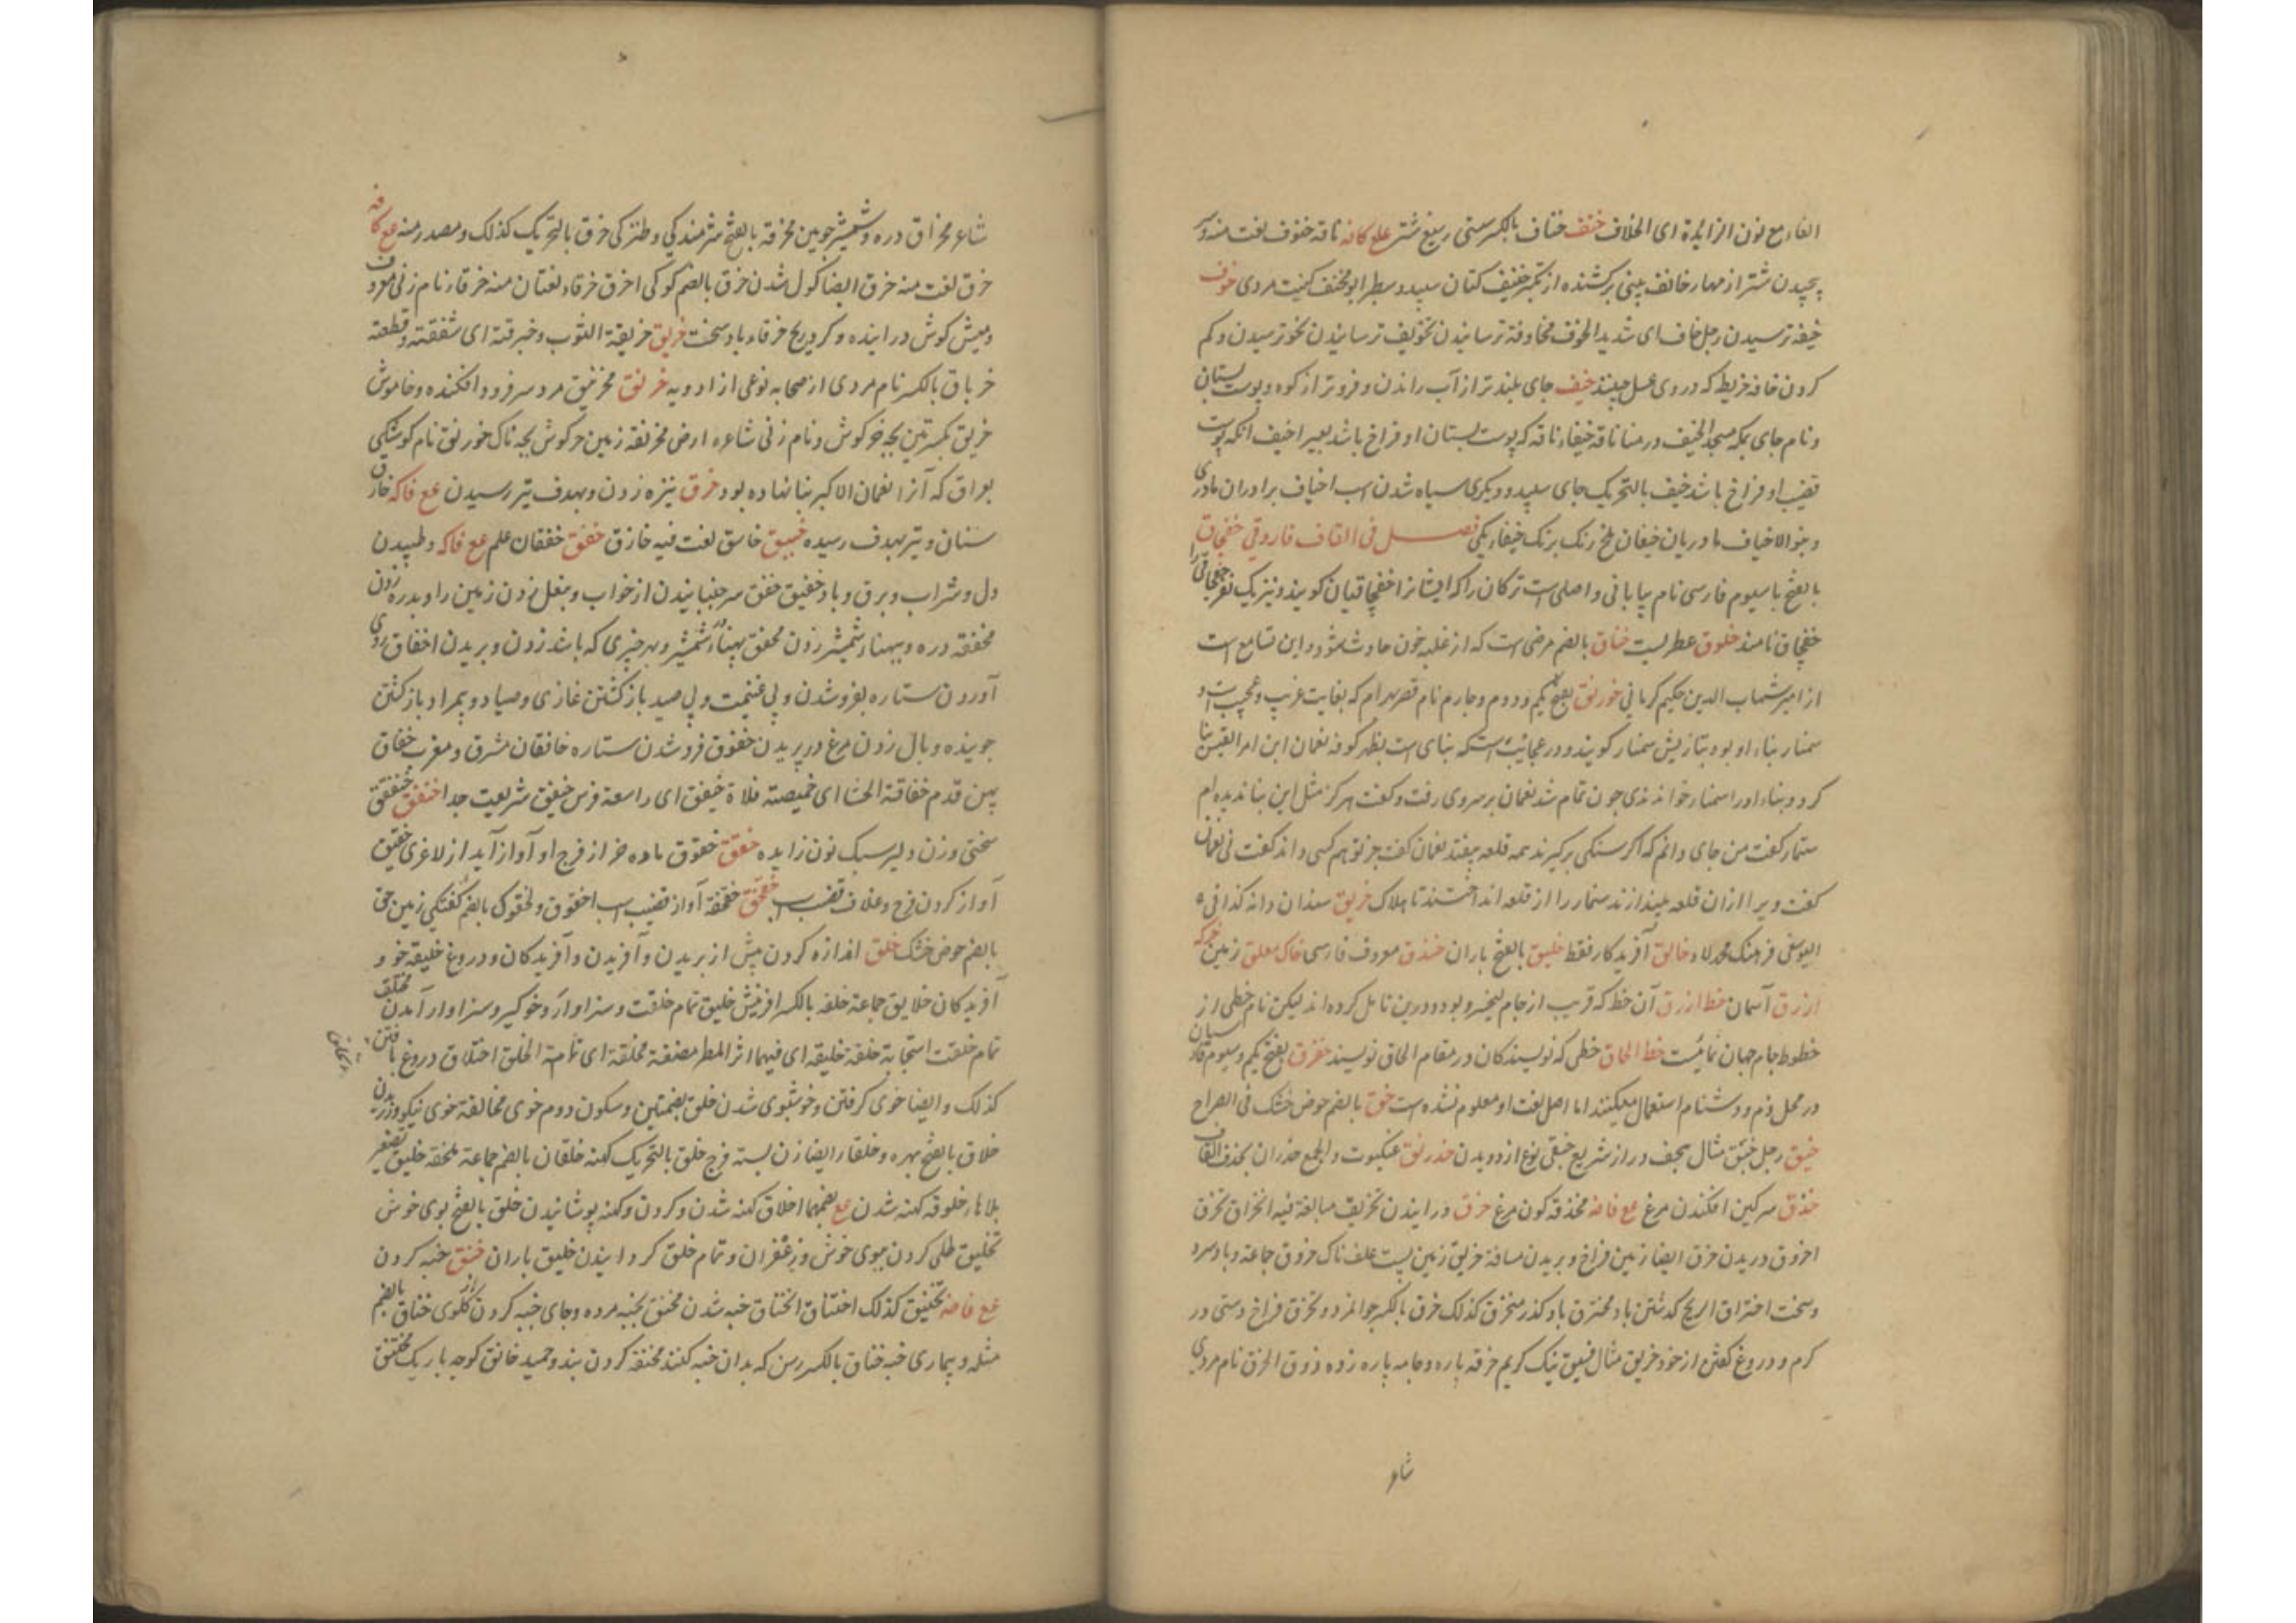 الفاء مع نون الزایدة ای الخلاف خنف خناف بالکسر سستی رسغ شتر علم کافه ناقه خنوف لغت منه و سر
پیچیدن شتر از مهار خانف بینی برکشنده از تکبر خنیف کتان سپید و سطبر ابو مخنف کنیت مردی خوف
خیفه ترسیدن رجل خاف ای شدید الخوف مخاوفة ترسانیدن تخویف ترسانیدن تخوف ترسیدن و کم
کردن خافه خریطه که در وی عسل چینند خیف جای بلندتر از آب راندن و فروتر از کوه و پوست پستان
و نام جای بمکه مسجد الخیف در منا ناقه خیفاء ناقه که پوست پستان او فراخ باشد بعیر اخیف انکه پوست
قضیب او فراخ باشد خیف بالتحریک جای سپید و دیکری سیاه شدن اسب اخیاف برادران مادری
و بنو الاخیاف مادریان خیفان ملخ رنک برنک خیفاء یکی فصل فی القاف فاروقی خفچاق
بالفتح با سیوم فارسی نام بیابانی و اصلی است ترکان را که ایشانرا خفچاقیان کویند و نیز یک نفر خفچاقی را
خفچاق نامند خلوق عطریست خناق بالضم مرضی است که از غلبه خون حادث شود و این تسامع است
از امیر شهاب الدین حکیم کرمانی خورنق بفتح یکم و دوم و چارم نام قصر بهرام که بغایت غریب و عجیب است و
سمنار بناء او بود بتازیش سمنار کویند و در عجائبست که بنای است بظهر کوفه نعمان ابن امرالقیس بنا
کرد و بناء او را سمنار خوانندی چون تمام شد نعمان برسر وی رفت و کفت هرکز مثل این بنا ندیده‌ام
سنمار کفت من جای دانم که اکر سنکی برکیرند همه قلعه بیفتد نعمان کفت جز تو هم کسی داند کفت نی نعمان
کفت ویرا از ان قلعه بیندازند سنمار را از قلعه انداختند تا هلاک خریق سعدان دانه کذا فی
الیوسفی فرهنک محمد لاد خالق آفریدکار فقط خلیق بالفتح باران خندق معروف فارسی خاک معلق زمین
ازرق آسمان خط ازرق آن خط که قریب از جام کیخسرو بود و درین تامل کرده‌اند لیکن نام خطی از
خطوط جام جهان نمائست خط الحاق خطی که نویسندکان در مقام الحاق نویسند خنزق بفتح یکم و سیوم
در محل ذم و دشنام استعمال میکنند اما اصل لغت او معلوم نشده است خق بالضم حوض خشک فی الصراح
خبق رجل خبق مثال هجف دراز شریع خبقی نوع از دویدن خدرنق عنکبوت والجمع خدران بحذف القاف
خذق سرکین افکندن مرغ مع فاضه مخذقه کون مرغ خرق درانیدن تخریق مبالغة فیه انخراق تخرق
اخروق دریدن خرق ایضا زمین فراخ و بریدن مسافة خریق زمین پست علف ناک خروق جماعة و باد سرد
و سخت اختراق الریح کذشتن باد مخترق باد کذر منخرق کذلک خرق بالکسر جوانمرد و تخرق فراخ دستی در
کرم و دروغ کفتن از خود خریق مثال فسیق نیک کریم خرقه پاره و جامه پاره زده ذوق الخرق نام مردی
شاعر
شاعر مخراق دره و شمشیر چوبین مخرقه بالفتح شرمندکی و طنزکی خرق بالتحریک کذلک و مصدر منه مع کافه
خرق لغت منه خرق ایضا کول شدن خرق بالضم کوکی اخرق خرقاء لغتان منه خرقاء نام زنی معروف
و میش کوش درانیده و کرد ریح خرقاء باد سخت خربق خربقة الثوب و خبرقته ای شققته و قطعته
خرباق بالکسر نام مردی از صحابه نوعی از ادویه خرنق مخرنبق مرد سر فرود افکنده و خاموش
خرنق بکسرتین بچه خرکوش و نام زنی شاعره ارض مخرنقة زمین خرکوش بچه ناک خورنق نام کوشکی
بعراق که آنرا نعمان الاکبر بنا نهاده بود خزق نیزه زدن و بهدف تیر رسیدن مع فاکه خازق
سنان و تیر بهدف رسیده خسق خاسق لغت فیه خازق خفق خفقان علم مع فاکه و طپیدن
دل و شراب و برق و باد خفیق خفق سر جنبانیدن از خواب و بنعل زدن زمین را و بدره زدن
مخفقه دره و بپهنا شمشیر زدن مخفق پهناء شمشیر و هر چیزی که باشد زدن و بریدن اخفاق روی
آوردن ستاره بفروشدن و بی غنیمت و بی صید بازکشتن غازی و صیاد و بمراد بازکشتن
جوینده و بال زدن مرغ در پریدن خفوق فروشدن ستاره خافقان مشرق و مغرب خفاق
پهن قدم خفاقة الحشا ای خمیصته فلاة خیفق ای واسعة فرس خیفق سریعت جدا خنفق خنفقیق
سختی و زن دلیر سبک نون زایده خقق خقوق ماده خر از فرج او آواز آید از لاغری خقیق
آواز کردن فرج و غلاف قضیب اسپ خقخق خقخقه آواز قضیب اسب اخقوق و لخقوق بالضم کفتکی زمین خق
بالضم حوض خشک خلق اندازه کردن پیش از بریدن و آفریدن و آفریدکان و دروغ خلیقه خو و
آفریدکان خلایق جماعة خلقه بالکسر افرینش خلیق تمام خلقت و سزاوار و خوکیر و سزاوار آمدن مختلق
تمام خلقت استحابة خلقة خلیقه ای فیها اثر المطر مضغة مخلقة ای تامة الخلق اختلاق دروغ بافتن
کذلک و ایضا خوی کرفتن و خوشبوی شدن خلق بضمتین و سکون دوم خوی مخالقة خوی نیکو ورزیدن
خلاق بالفتح بهره و خلقاء ایضا زن بسته فرج خلق بالتحریک کهنه خلقان بالضم جماعة ملحفه خلیق تصغیر
بلا هاء خلوقه کهنه شدن مع بضمهما اخلاق کهنه شدن و کردن و کهنه پوشانیدن خلق بالفتح بوی خوش
تخلیق طلی کردن ببوی خوش و زعفران و تمام خلق کردانیدن خلیق باران خنق خبه کردن
مع فاضه تخنیق کذلک اختناق انخناق خبه شدن مخنق بخبه مرده و جای خبه کردن از کلوی خناق بالضم
مثله و بیماری خبه خناق بالکسر رسن که بدان خبه کنند مخنقه کردن بند و حمید خانق کوچه باریک مختنق